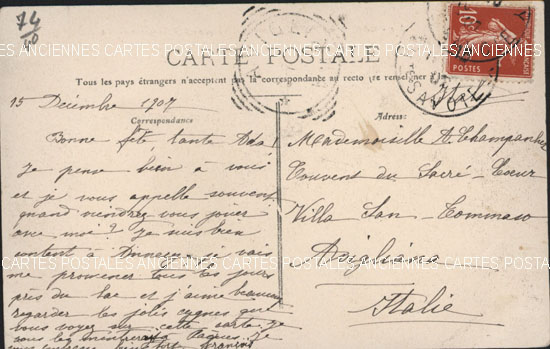 74
50
CARTE POSTALE
Tous les pays étrangers n'acceptent pas la correspondance au recto (se renseigner
15 Décembre 1907
Correspondance
Adresse:
10c
POSTES
SAVOIE
Bonne fête, tante Ada!
Je pense bien à vous
et je vous appelle souvent
quand viendrez vous jouer
avec moi? Je suis bien
me promener tous les jours
près du lac et j'aime beaucoup
regarder les jolis cygnes que
vous voyez sur cette carte je
Mademoiselle A. Champanhet
Couvent du Sacré-Coeur
Villa San-Tommaso
Avigliana
Italie
ANCIENNES CARTES POSTALES ANCIENNES CARTES POSTALES ANCIENNES CARTES
CARTES POSTALES ANCIENNES CARTES POSTALES